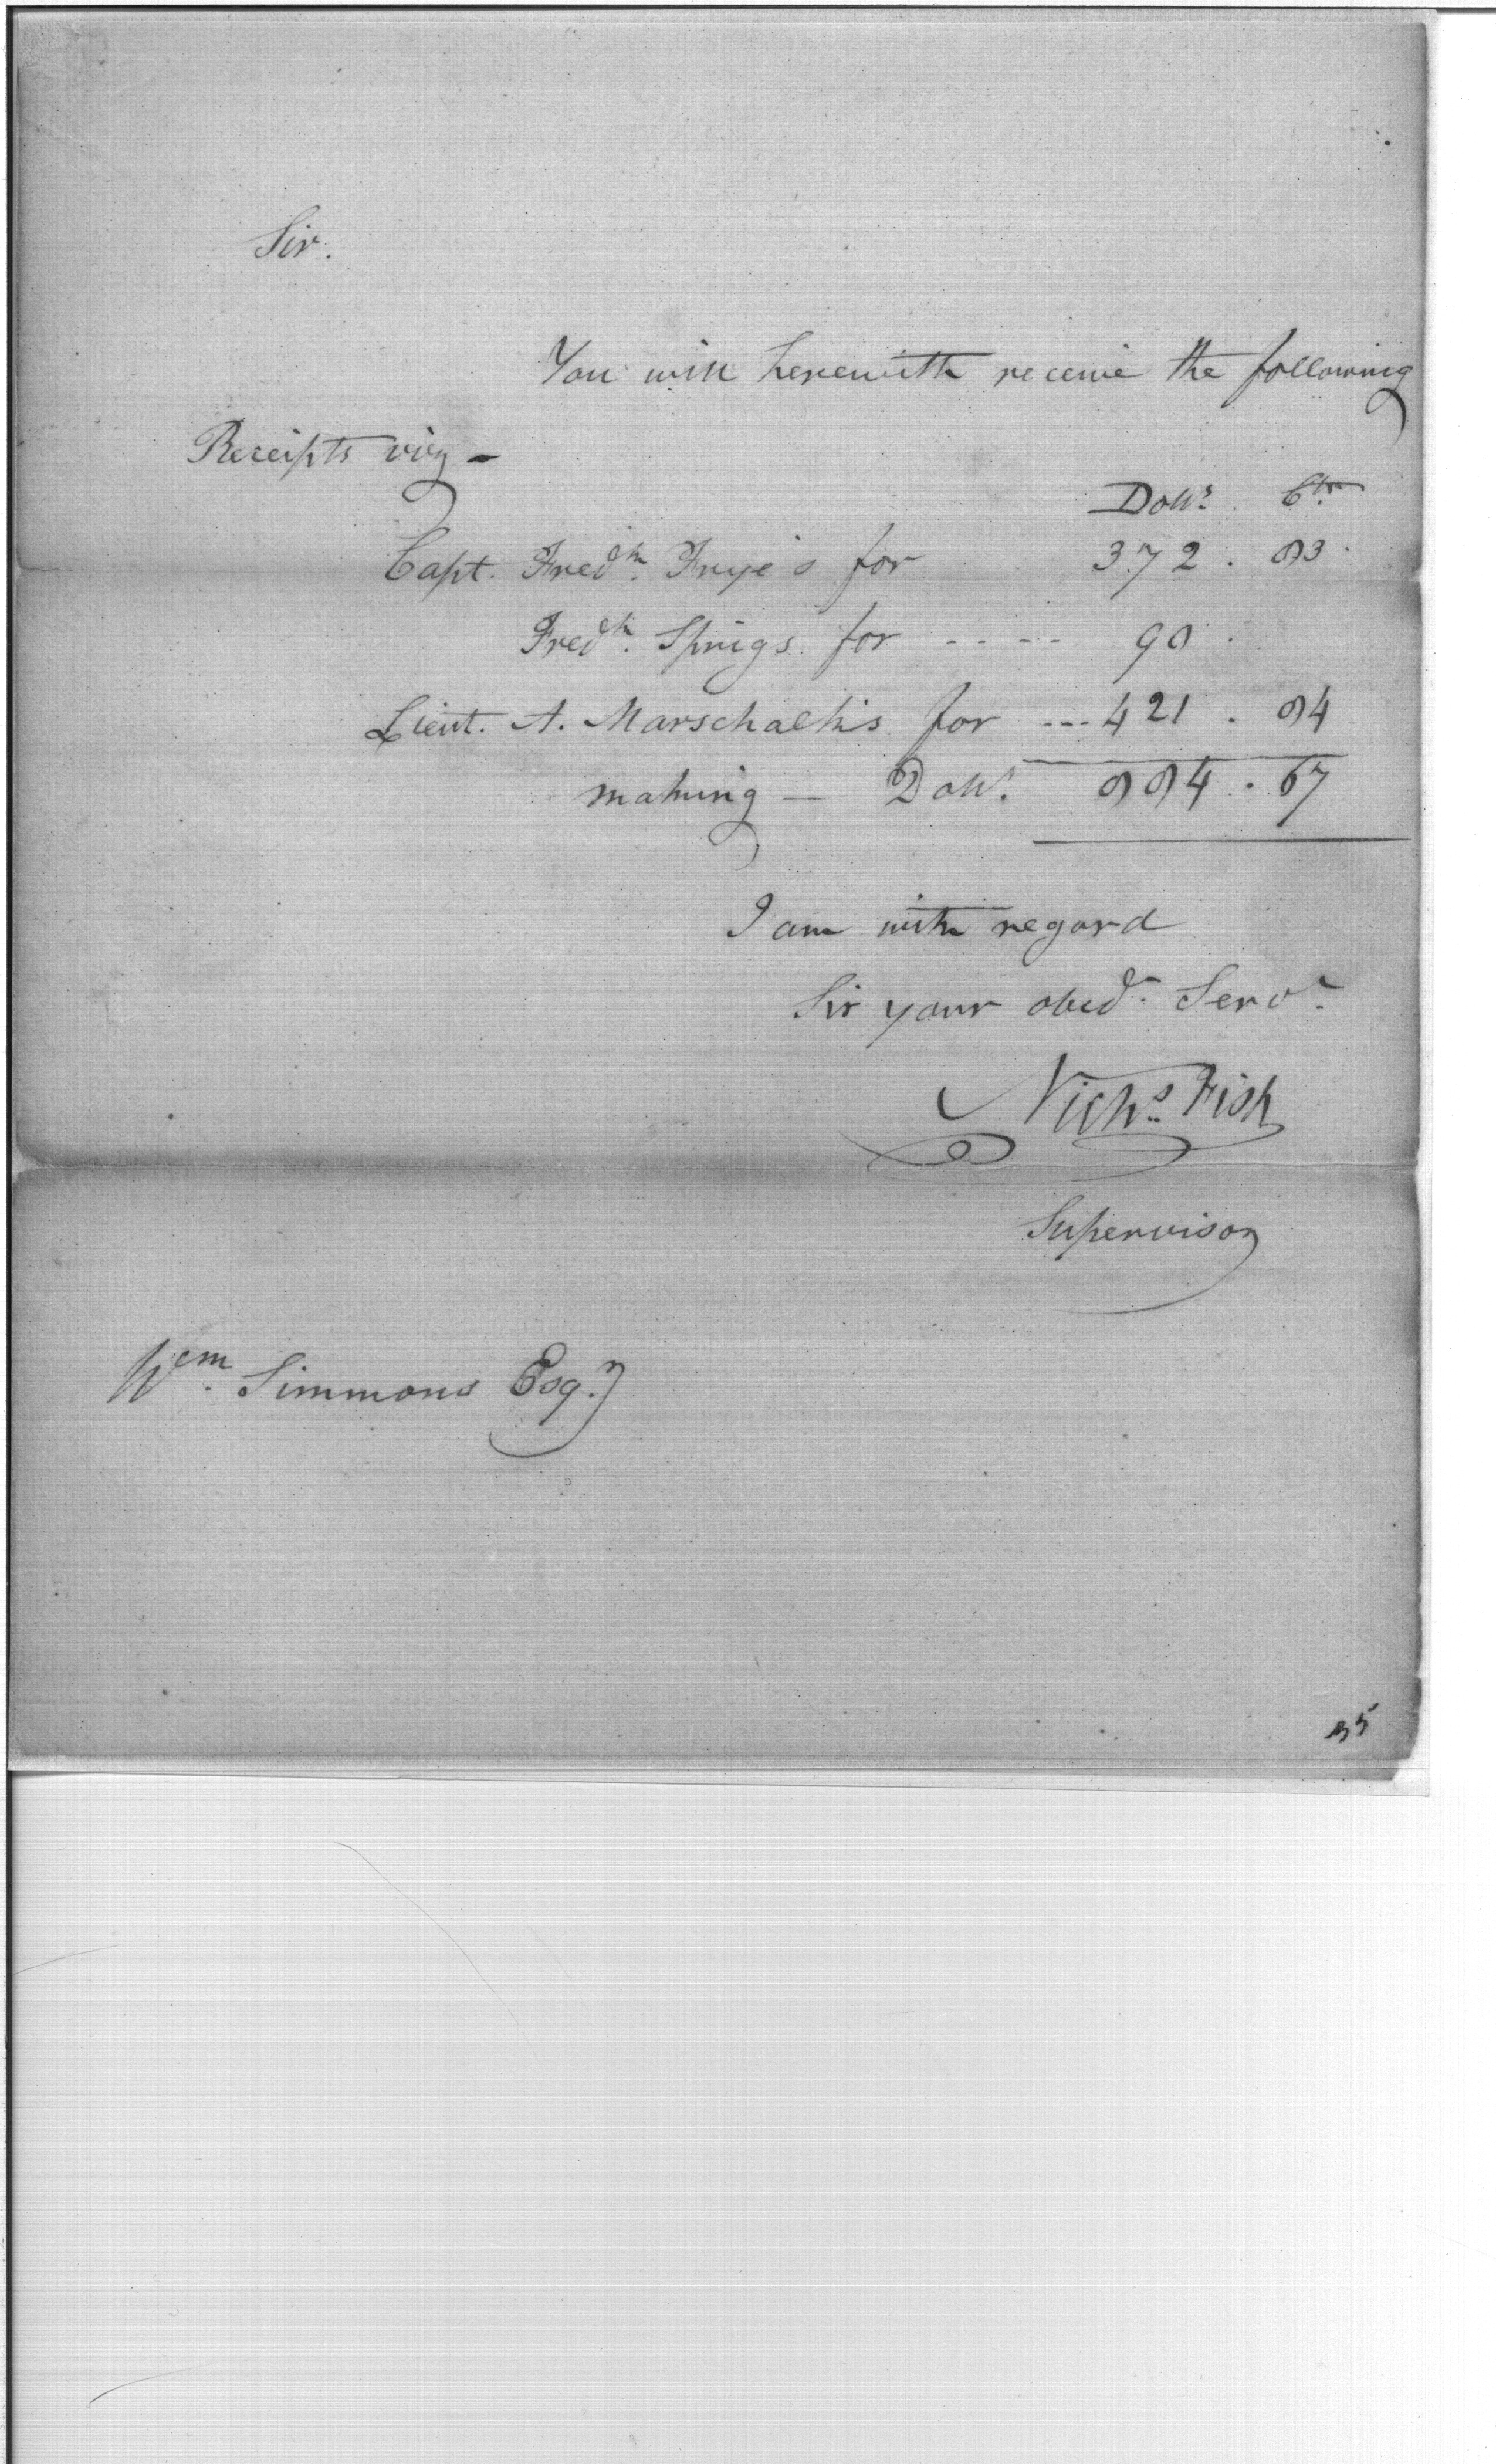 Sir.
You will herewith receive the following
Receipts viz -
Dolls. Cts.
Capt. Fredk. Frye's for 372 . 83.
Fredk. Sprigs for - - - - 90 .
Lieut. A. Marschalk's for --- 421 . 84
making — Dolls. 884 . 67
I am with regard
Sir your obedt. Servt.
Nichs. Fish
Supervisor
Wm. Simmons Esqr.
35